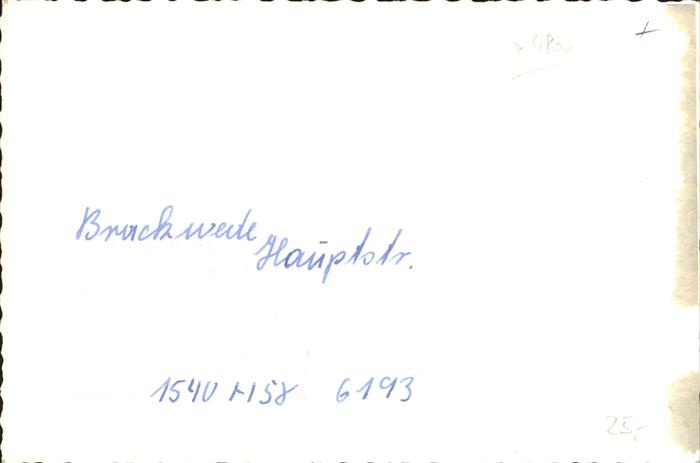 x 4800
Brackwede
Hauptstr.
1540 H 58 6193
25,-